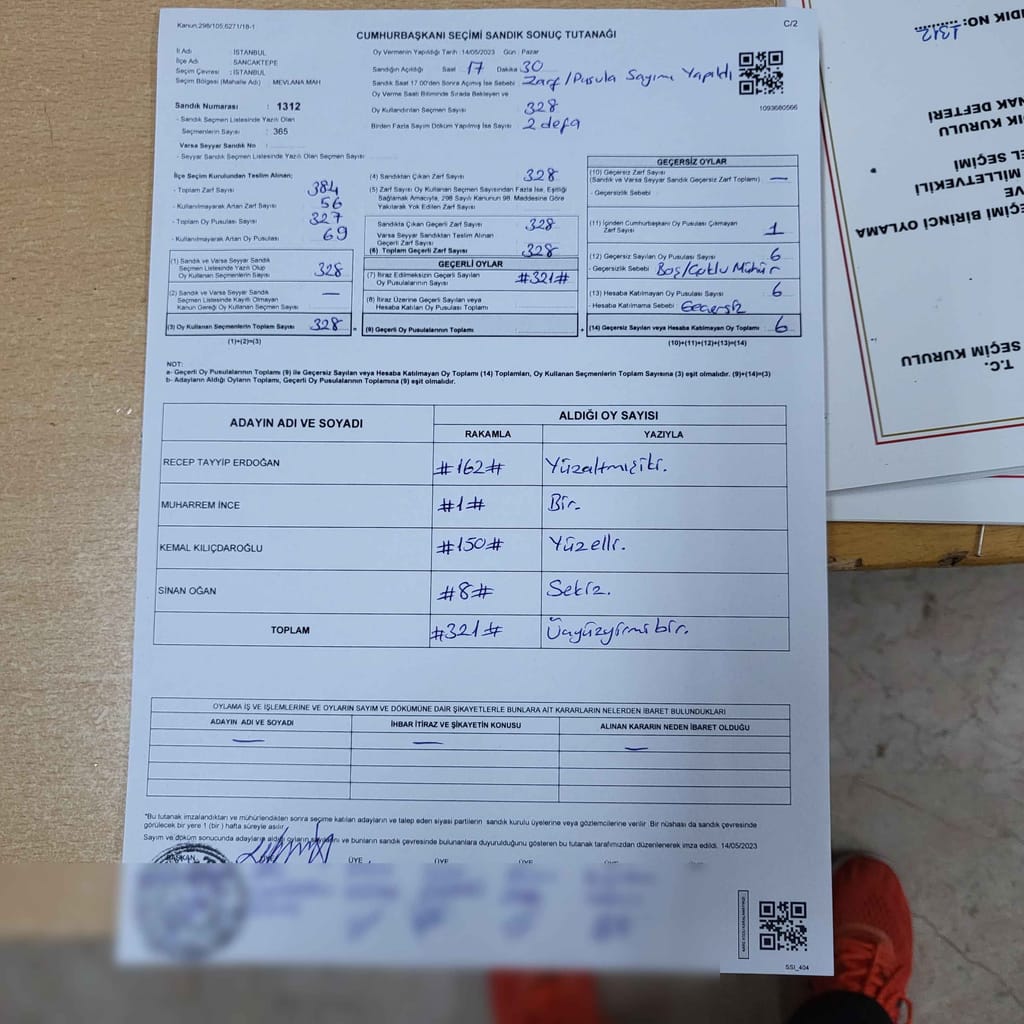 Kanun:298/105;6271/18-1
C/2
CUMHURBAŞKANI SEÇİMİ SANDIK SONUÇ TUTANAĞI
İl Adı : İSTANBUL
İlçe Adı : SANCAKTEPE
Seçim Çevresi : İSTANBUL
Seçim Bölgesi (Mahalle Adı) : MEVLANA MAH
Sandık Numarası : 1312
- Sandık Seçmen Listesinde Yazılı Olan
Seçmenlerin Sayısı : 365
Varsa Seyyar Sandık No :
- Seyyar Sandık Seçmen Listesinde Yazılı Olan Seçmen Sayısı
Oy Vermenin Yapıldığı Tarih :14/05/2023 Gün : Pazar
Sandığın Açıldığı Saat 17 Dakika 30
Sandık Saat 17.00'den Sonra Açılmış İse Sebebi Zarf/Pusula Sayımı Yapıldı
Oy Verme Saati Bitiminde Sırada Bekleyen ve
Oy Kullandırılan Seçmen Sayısı 328
Birden Fazla Sayım Döküm Yapılmış İse Sayısı 2 defa
1093680566
İlçe Seçim Kurulundan Teslim Alınan;
- Toplam Zarf Sayısı 384
- Kullanılmayarak Artan Zarf Sayısı 56
- Toplam Oy Pusulası Sayısı 327
- Kullanılmayarak Artan Oy Pusulası 69
(1) Sandık ve Varsa Seyyar Sandık
Seçmen Listesinde Yazılı Olup
Oy Kullanan Seçmenlerin Sayısı 328
(2) Sandık ve Varsa Seyyar Sandık
Seçmen Listesinde Kayıtlı Olmayan
Kanun Gereği Oy Kullanan Seçmen Sayısı —
(3) Oy Kullanan Seçmenlerin Toplam Sayısı 328 =
(1)+(2)=(3)
(4) Sandıktan Çıkan Zarf Sayısı 328
(5) Zarf Sayısı Oy Kullanan Seçmen Sayısından Fazla İse, Eşitliği
Sağlamak Amacıyla, 298 Sayılı Kanunun 98. Maddesine Göre
Yakılarak Yok Edilen Zarf Sayısı
Sandıkta Çıkan Geçerli Zarf Sayısı 328
Varsa Seyyar Sandıktan Teslim Alınan
Geçerli Zarf Sayısı
(6) Toplam Geçerli Zarf Sayısı 328
GEÇERLİ OYLAR
(7) İtiraz Edilmeksizin Geçerli Sayılan
Oy Pusulalarının Sayısı #321#
(8) İtiraz Üzerine Geçerli Sayılan veya
Hesaba Katılan Oy Pusulası Toplamı
(9) Geçerli Oy Pusulalarının Toplamı +
GEÇERSİZ OYLAR
(10) Geçersiz Zarf Sayısı
(Sandık ve Varsa Seyyar Sandık Geçersiz Zarf Toplamı) —
- Geçersizlik Sebebi
(11) İçinden Cumhurbaşkanı Oy Pusulası Çıkmayan
Zarf Sayısı 1
(12) Geçersiz Sayılan Oy Pusulası Sayısı 6
- Geçersizlik Sebebi Boş/Çoklu Mühür
(13) Hesaba Katılmayan Oy Pusulası Sayısı 6
- Hesaba Katılmama Sebebi Geçersiz
(14) Geçersiz Sayılan veya Hesaba Katılmayan Oy Toplamı 6
(10)+(11)+(12)+(13)=(14)
NOT:
a- Geçerli Oy Pusulalarının Toplamı (9) ile Geçersiz Sayılan veya Hesaba Katılmayan Oy Toplamı (14) Toplamları, Oy Kullanan Seçmenlerin Toplam Sayısına (3) eşit olmalıdır. (9)+(14)=(3)
b- Adayların Aldığı Oyların Toplamı, Geçerli Oy Pusulalarının Toplamına (9) eşit olmalıdır.
ADAYIN ADI VE SOYADI
ALDIĞI OY SAYISI
RAKAMLA YAZIYLA
RECEP TAYYİP ERDOĞAN #162# Yüzaltmışiki.
MUHARREM İNCE #1# Bir.
KEMAL KILIÇDAROĞLU #150# Yüzelli.
SİNAN OĞAN #8# Sekiz.
TOPLAM #321# Üçyüzyirmibir.
OYLAMA İŞ VE İŞLEMLERİNE VE OYLARIN SAYIM VE DÖKÜMÜNE DAİR ŞİKAYETLERLE BUNLARA AİT KARARLARIN NELERDEN İBARET BULUNDUKLARI
ADAYIN ADI VE SOYADI İHBAR İTİRAZ VE ŞİKAYETİN KONUSU ALINAN KARARIN NEDEN İBARET OLDUĞU
— — —
*Bu tutanak imzalandıktan ve mühürlendikten sonra seçime katılan adayların ve talep eden siyasi partilerin sandık kurulu üyelerine veya gözlemcilerine verilir. Bir nüshası da sandık çevresinde
görülecek bir yere 1 (bir) hafta süreyle asılır.
Sayım ve döküm sonucunda adayların aldığı oyların sayısını ve bunların sandık çevresinde bulunanlara duyurulduğunu gösteren bu tutanak tarafımızdan düzenlenerek imza edildi. 14/05/2023
BAŞKAN ÜYE ÜYE ÜYE ÜYE ÜYE
SSI_404
T.C.
SEÇİM KURULU
SANDIK NO: 1312
EL SEÇİMİ
MİLLETVEKİLİ
VE
SEÇİMİ BİRİNCİ OYLAMA